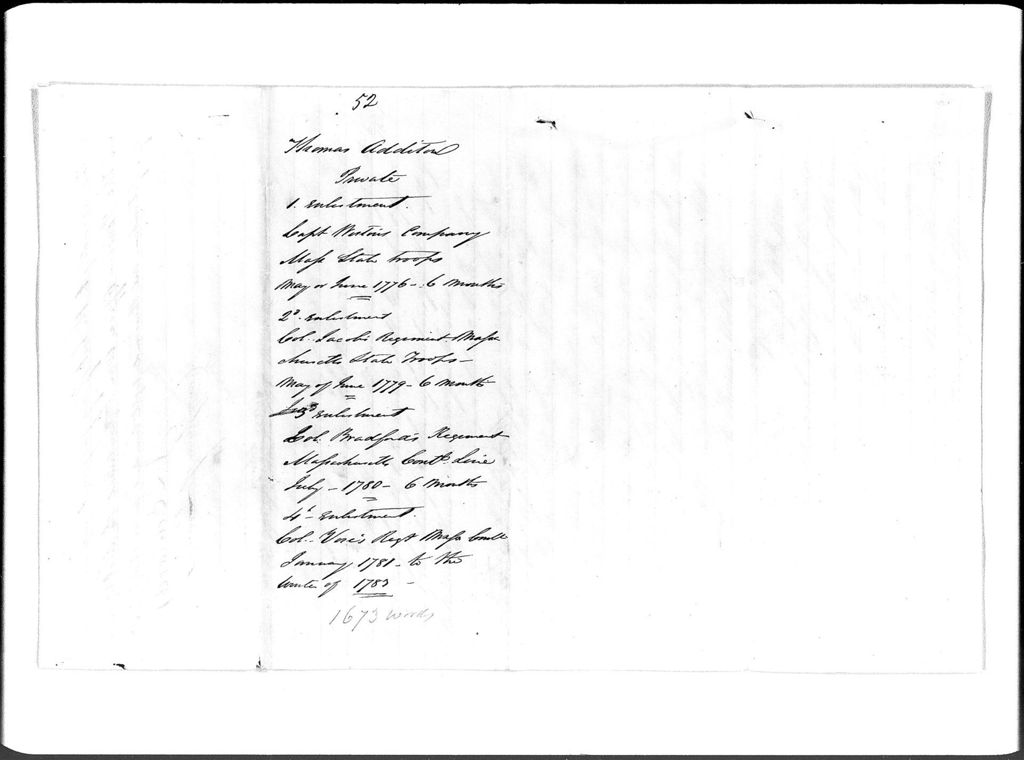 52
Thomas Additon
Private
1. Enlistment.
Capt Westons Company
Mass State troops
May or June 1776 - 6 Months
2d. Enlistment
Col. Jacobs Regiment Massa
chusetts State Troops -
May of June 1779 - 6 Months
3d Enlistment
Col. Bradfords Regiment
Massachusetts Contl. Line
July - 1780 - 6 Months
4t - Enlistment.
Col. Vose's Regt Mass Contl
January 1781 - to the
Winter of 1783 -
1673 words